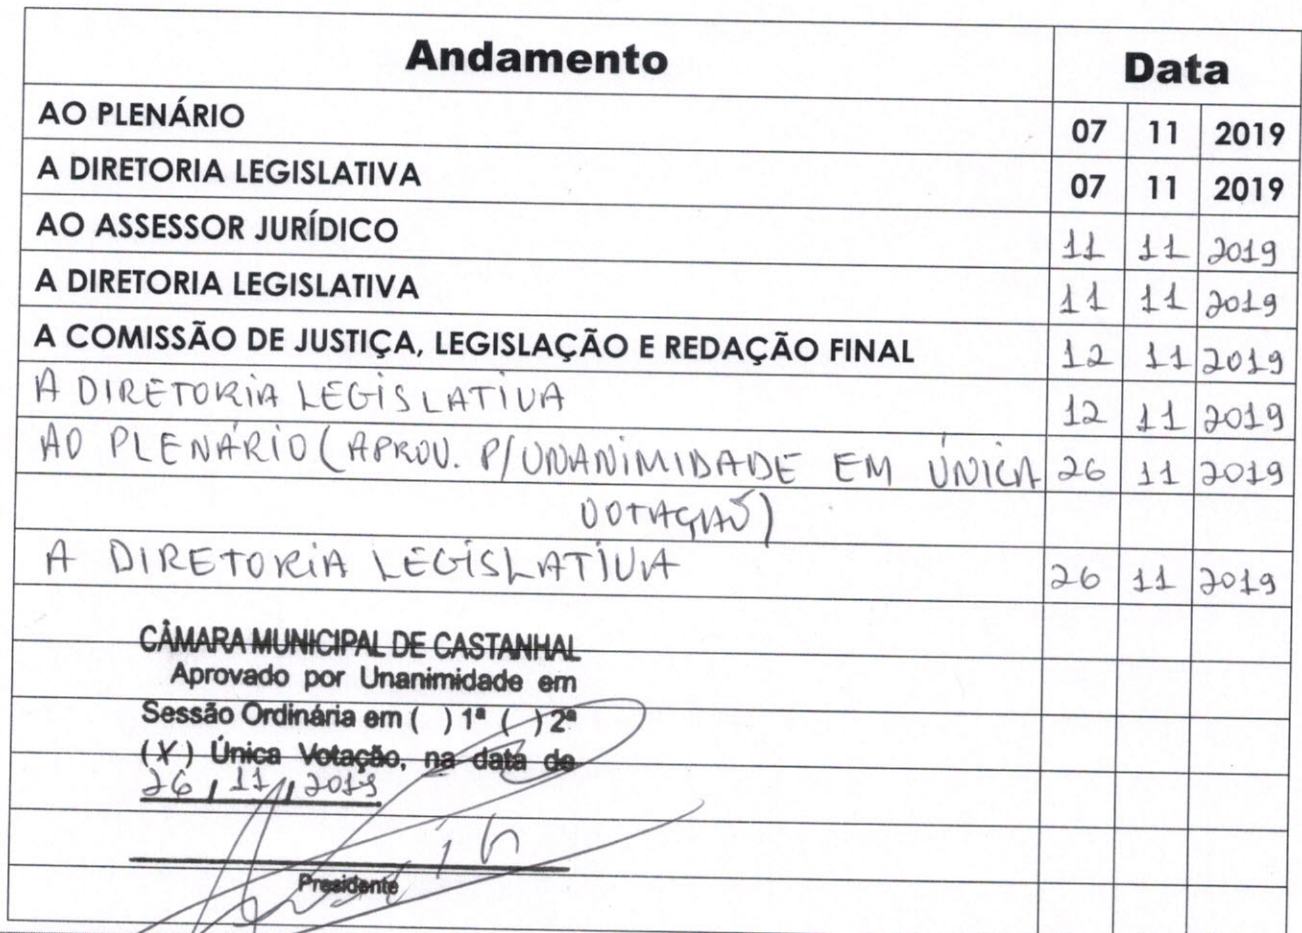 Andamento Data
AO PLENÁRIO 07 11 2019
A DIRETORIA LEGISLATIVA 07 11 2019
AO ASSESSOR JURÍDICO 11 11 2019
A DIRETORIA LEGISLATIVA 11 11 2019
A COMISSÃO DE JUSTIÇA, LEGISLAÇÃO E REDAÇÃO FINAL 12 11 2019
A DIRETORIA LEGISLATIVA 12 11 2019
AO PLENÁRIO (APROV. P/UNANIMIDADE EM ÚNICA 26 11 2019
VOTAÇÃO)
A DIRETORIA LEGISLATIVA 26 11 2019
CÂMARA MUNICIPAL DE CASTANHAL
Aprovado por Unanimidade em
Sessão Ordinária em ( ) 1ª ( ) 2ª
(X) Única Votação, na data de
26 / 11 / 2019
Presidente